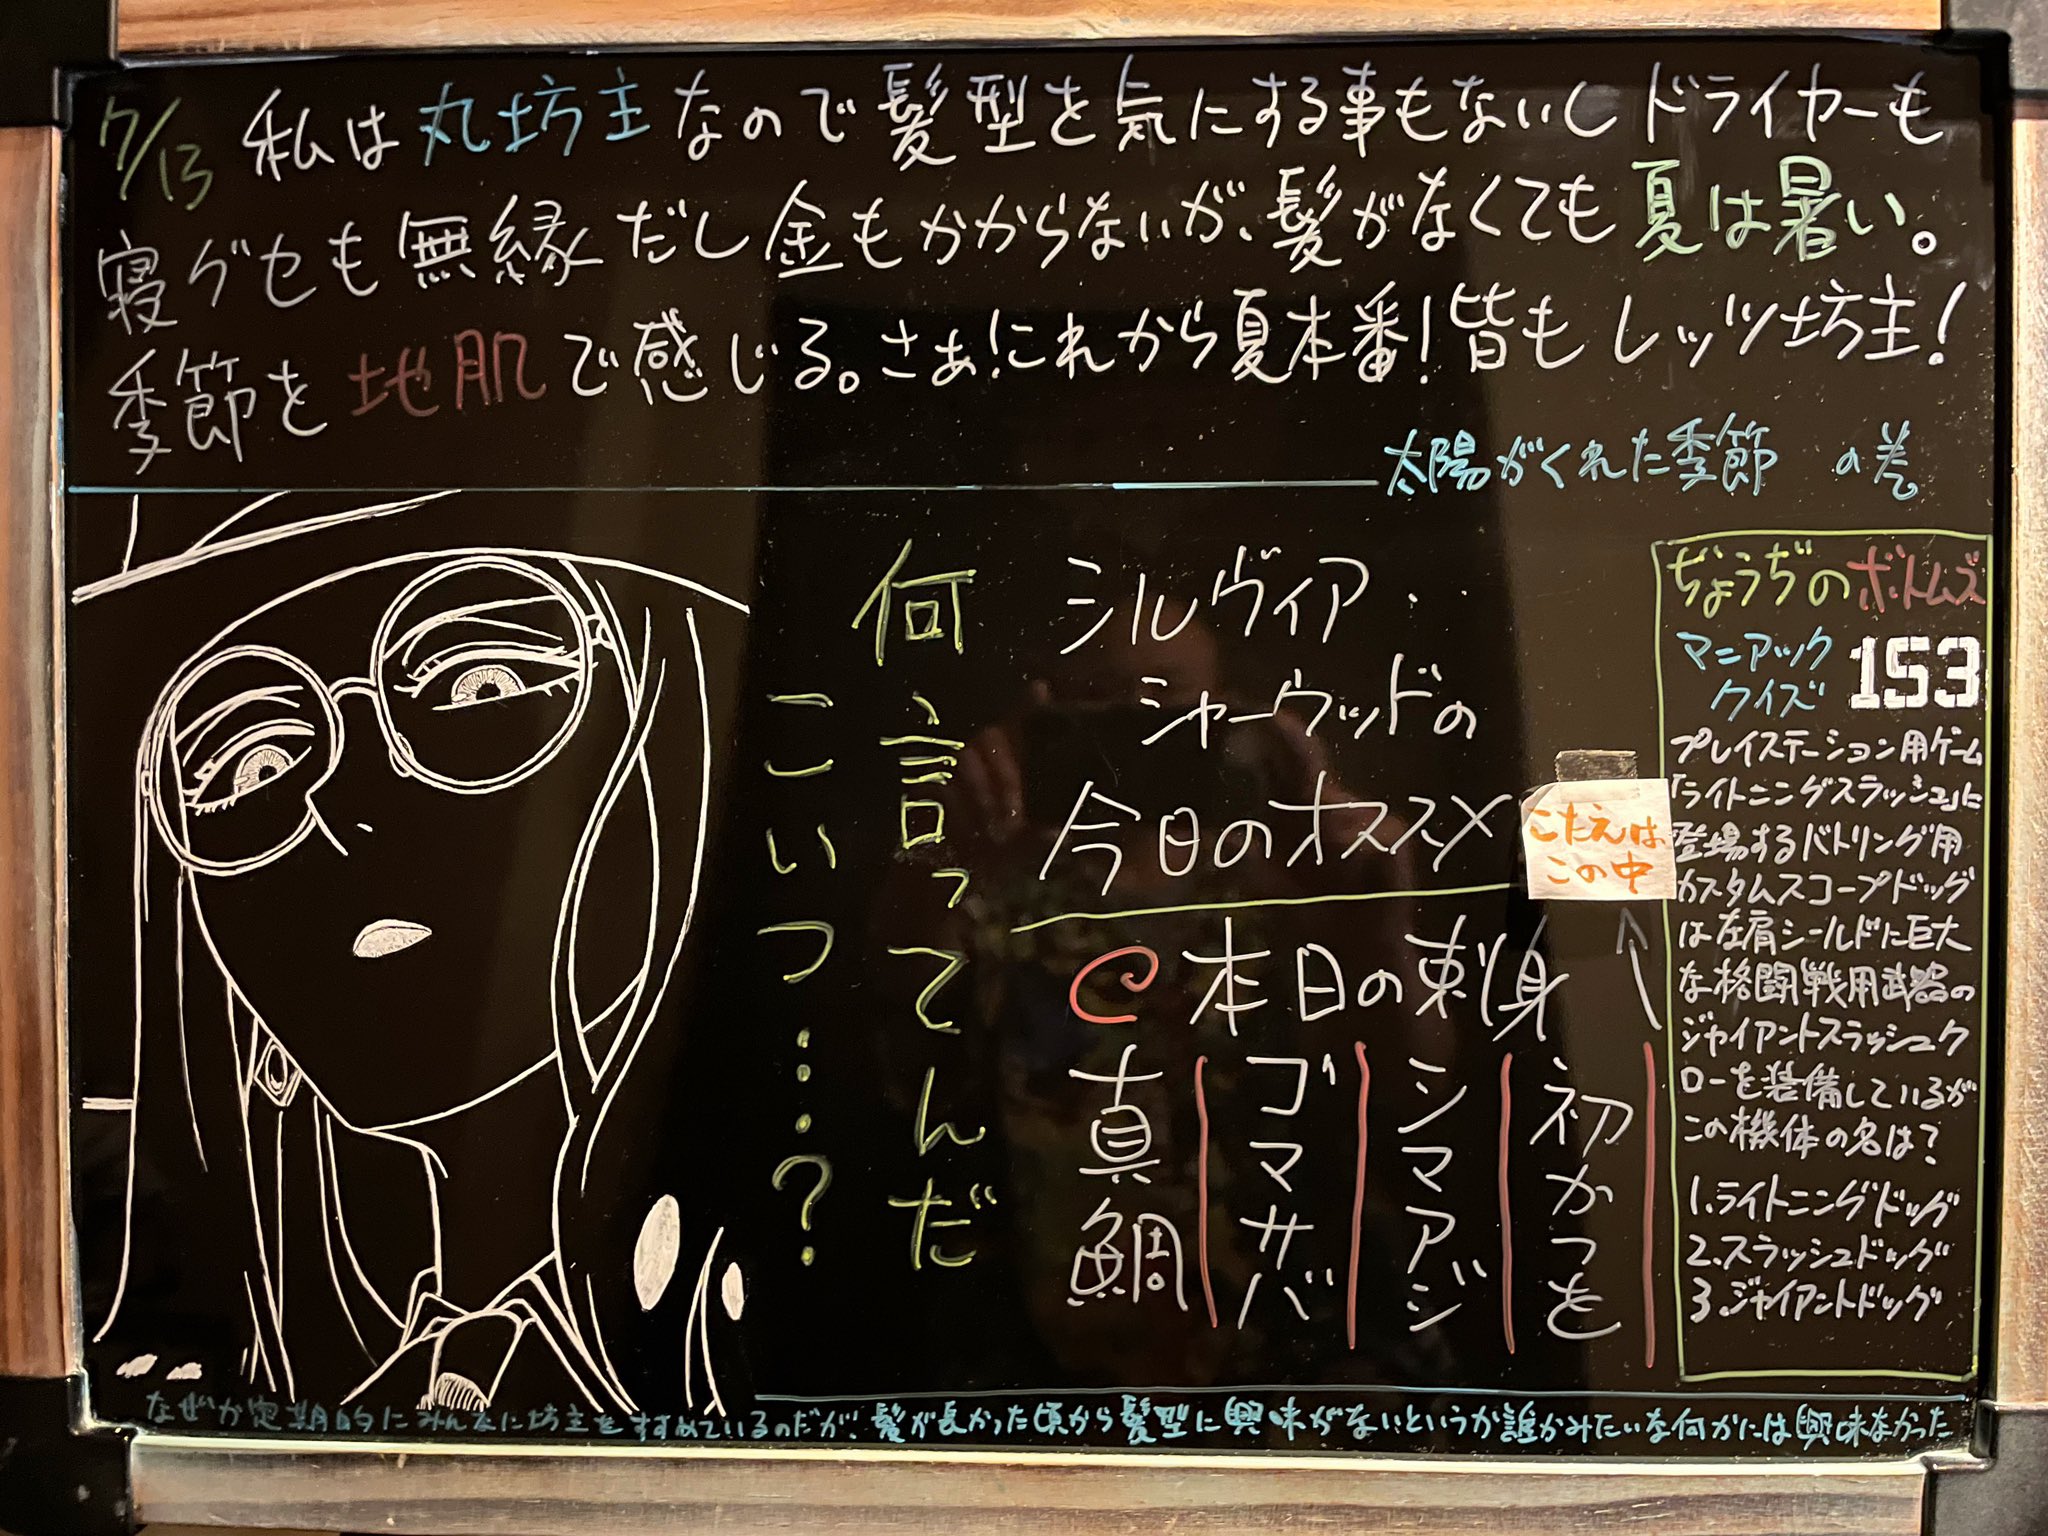 7/13 私は丸坊主なので髪型を気にする事もないしドライヤーも
寝グセも無縁だし金もかからないが、髪がなくても夏は暑い。
季節を地肌で感じる。さぁ!これから夏本番!皆もレッツ坊主!
太陽がくれた季節 の巻
何言ってんだ
こいつ……?
シルヴィア・
シャーウッドの
今日のオススメ
本日の刺身
真鯛
ゴマサバ
シマアジ
初かつを
こたえは
この中
ぢょうぢのボトムズ
マニアック
クイズ
153
プレイステーション用ゲーム
「ライトニングスラッシュ」に
登場するバトリング用
カスタムスコープドッグ
は左肩シールドに巨大
な格闘戦用武器の
ジャイアントスラッシュク
ローを装備しているが
この機体の名は?
1.ライトニングドッグ
2.スラッシュドッグ
3.ジャイアントドッグ
なぜか定期的にみんなに坊主をすすめているのだが、髪が長かった頃から髪型に興味がないというか誰かみたいな何かには興味なかった